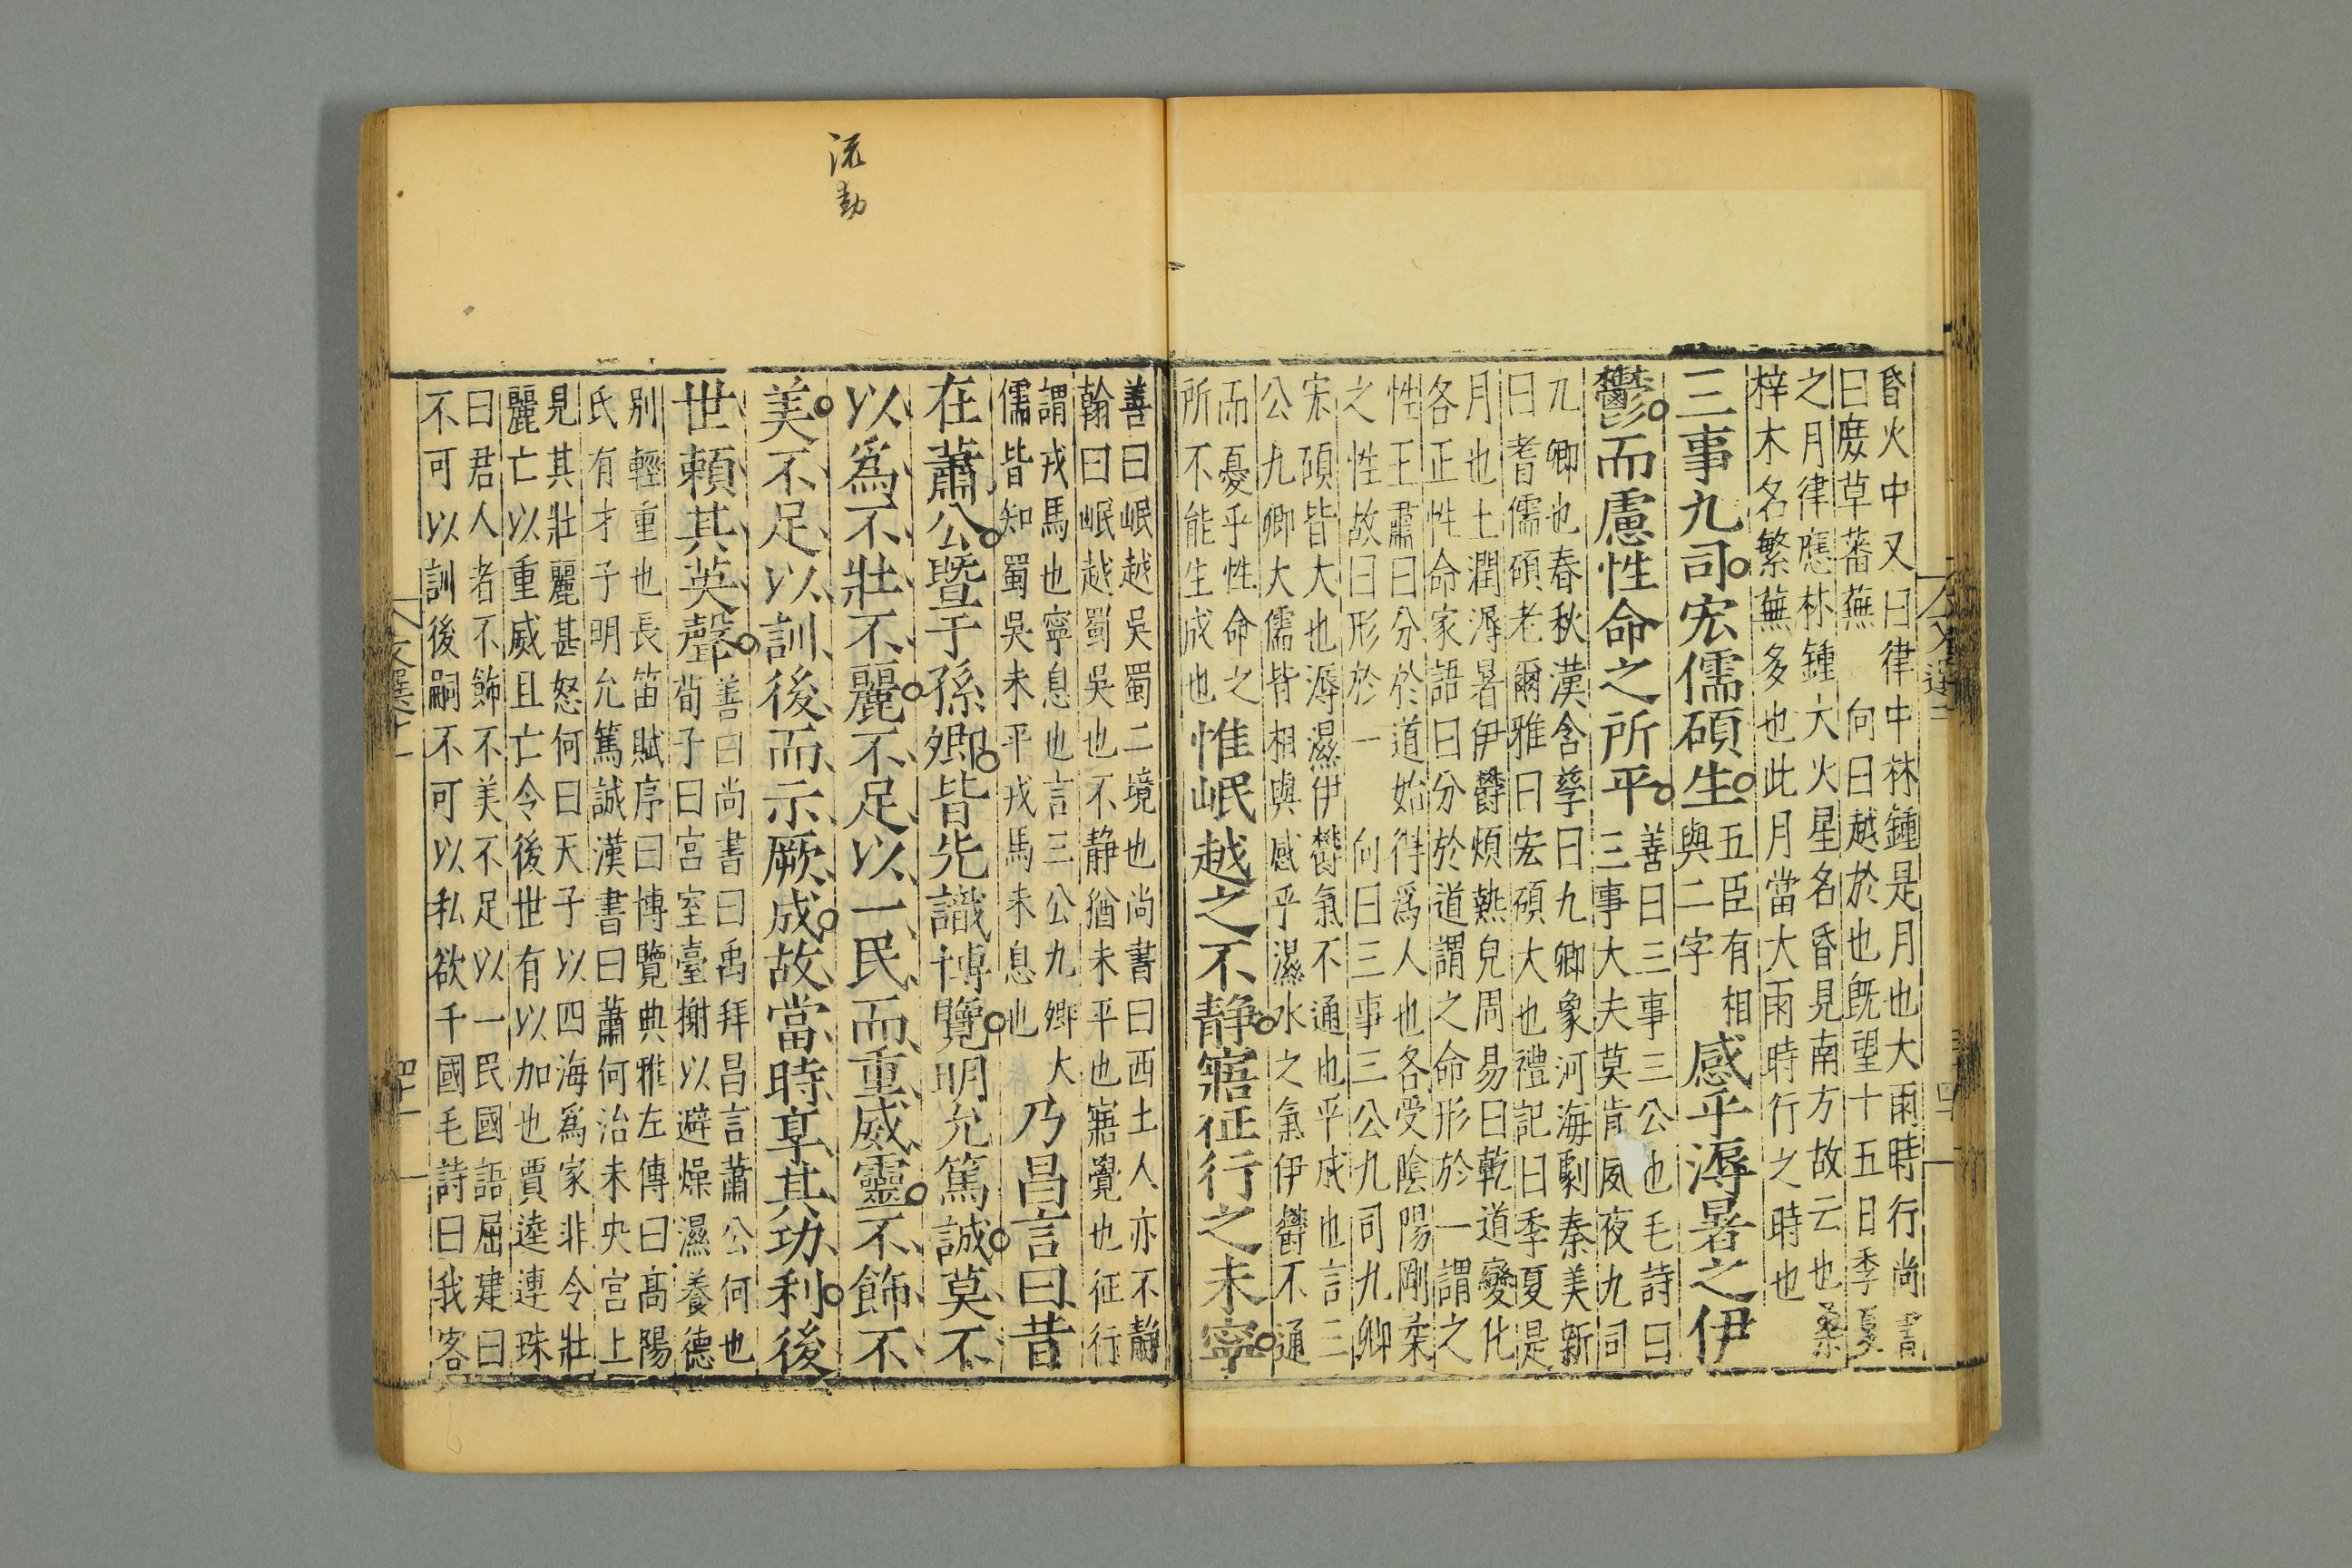 昏火中又曰律中林鍾是月也大雨時行尚書
曰庶草蕃蕪 向曰越於也旣望十五日季夏
之月律應林鍾大火星名昏見南方故云也桑
梓木名繁蕪多也此月當大雨時行之時也
三事九司宏儒碩生
五臣有相
與二字
感乎溽暑之伊
鬱而慮性命之所平
善曰三事三公也毛詩曰
三事大夫莫肯夙夜九司
九卿也春秋漢含孳曰九卿象河海劇秦美新
曰耆儒碩老爾雅曰宏碩大也禮記曰季夏是
月也土潤溽暑伊欝煩熱皃周易曰乾道變化
各正性命家語曰分於道謂之命形於一謂之
性王肅曰分於道始得爲人也各受陰陽剛柔
之性故曰形於一 向曰三事三公九司九卿
宏碩皆大也溽濕伊欝氣不通也乎感也言三
公九卿大儒皆相與感乎濕水之氣伊欝不通
而憂乎性命之
所不能生成也
惟岷越之不静寤征行之未寧
善曰岷越吳蜀二境也尚書曰西土人亦不静
翰曰岷越蜀吳也不静猶未平也寤覺也征行
謂戎馬也寧息也言三公九卿大
儒皆知蜀吳未平戎馬未息也
乃昌言曰昔
在蕭公暨于孫卿皆先識博覽明允篤誠莫不
以爲不壯不麗不足以一民而重威靈不飾不
美不足以訓後而示厥成故當時享其功利後
世賴其英聲
善曰尚書曰禹拜昌言蕭公何也
荀子曰宮室臺榭以避燥濕養德
別輕重也長笛賦序曰博覽典雅左傳曰髙陽
氏有才子明允篤誠漢書曰蕭何治未央宮上
見其壯麗甚怒何曰天子以四海爲家非令壯
麗亡以重威且亡令後世有以加也賈逵連珠
曰君人者不飾不美不足以一民國語屈建曰
不可以訓後嗣不可以私欲干國毛詩曰我客
流動
文選十一